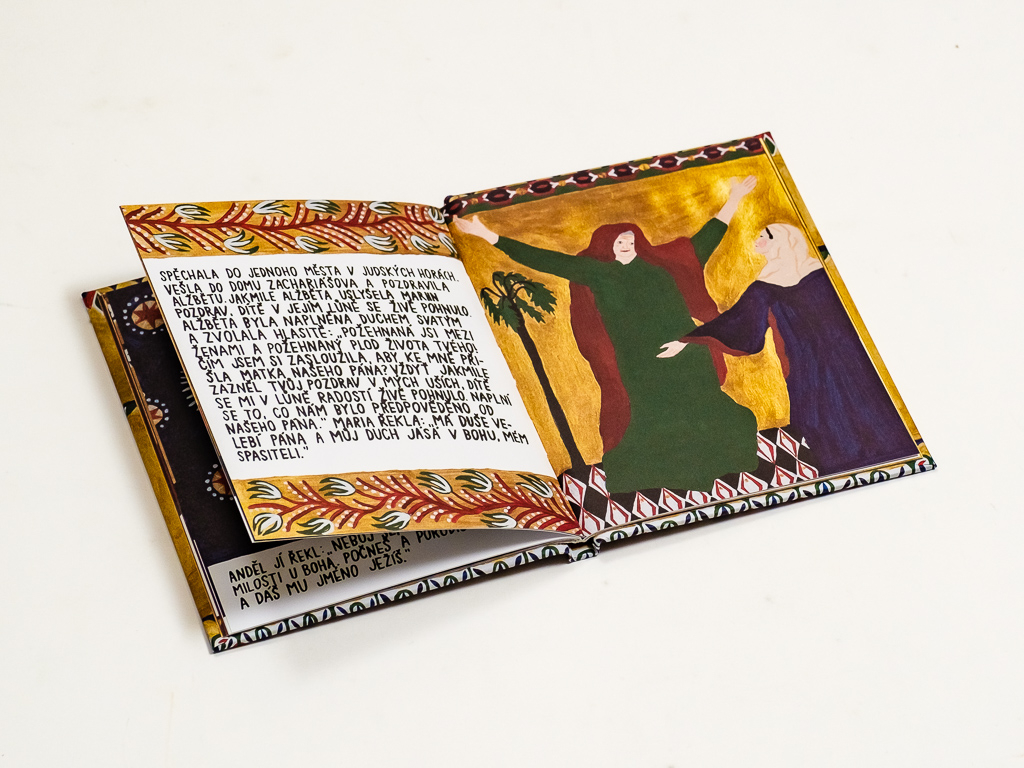 SPĚCHALA DO JEDNOHO MĚSTA V JUDSKÝCH HORÁCH
VEŠLA DO DOMU ZACHARIÁŠOVA A POZDRAVILA
ALŽBĚTU. JAKMILE ALŽBĚTA USLYŠELA MARIIN
POZDRAV, DÍTĚ V JEJÍM LŮNĚ SE ŽIVĚ POHNULO.
ALŽBĚTA BYLA NAPLNĚNA DUCHEM SVATÝM
A ZVOLALA HLASITĚ: „POŽEHNANÁ JSI MEZI
ŽENAMI A POŽEHNANÝ PLOD ŽIVOTA TVÉHO!
ČÍM JSEM SI ZASLOUŽILA, ABY KE MNĚ PŘI-
ŠLA MATKA NAŠEHO PÁNA? VŽDYŤ JAKMILE
ZAZNĚL TVŮJ POZDRAV V MÝCH UŠÍCH, DÍTĚ
SE MI V LŮNĚ RADOSTÍ ŽIVĚ POHNULO. NAPLNÍ
SE TO, CO NÁM BYLO PŘEDPOVĚDĚNO OD
NAŠEHO PÁNA." MARIA ŘEKLA: „MÁ DUŠE VE-
LEBÍ PÁNA A MŮJ DUCH JÁSÁ V BOHU, MÉM
SPASITELI."
ANDĚL JÍ ŘEKL: „NEBOJ
MILOSTI U BOHA. POČNEŠ A
A DÁŠ MU JMÉNO JEŽÍŠ."